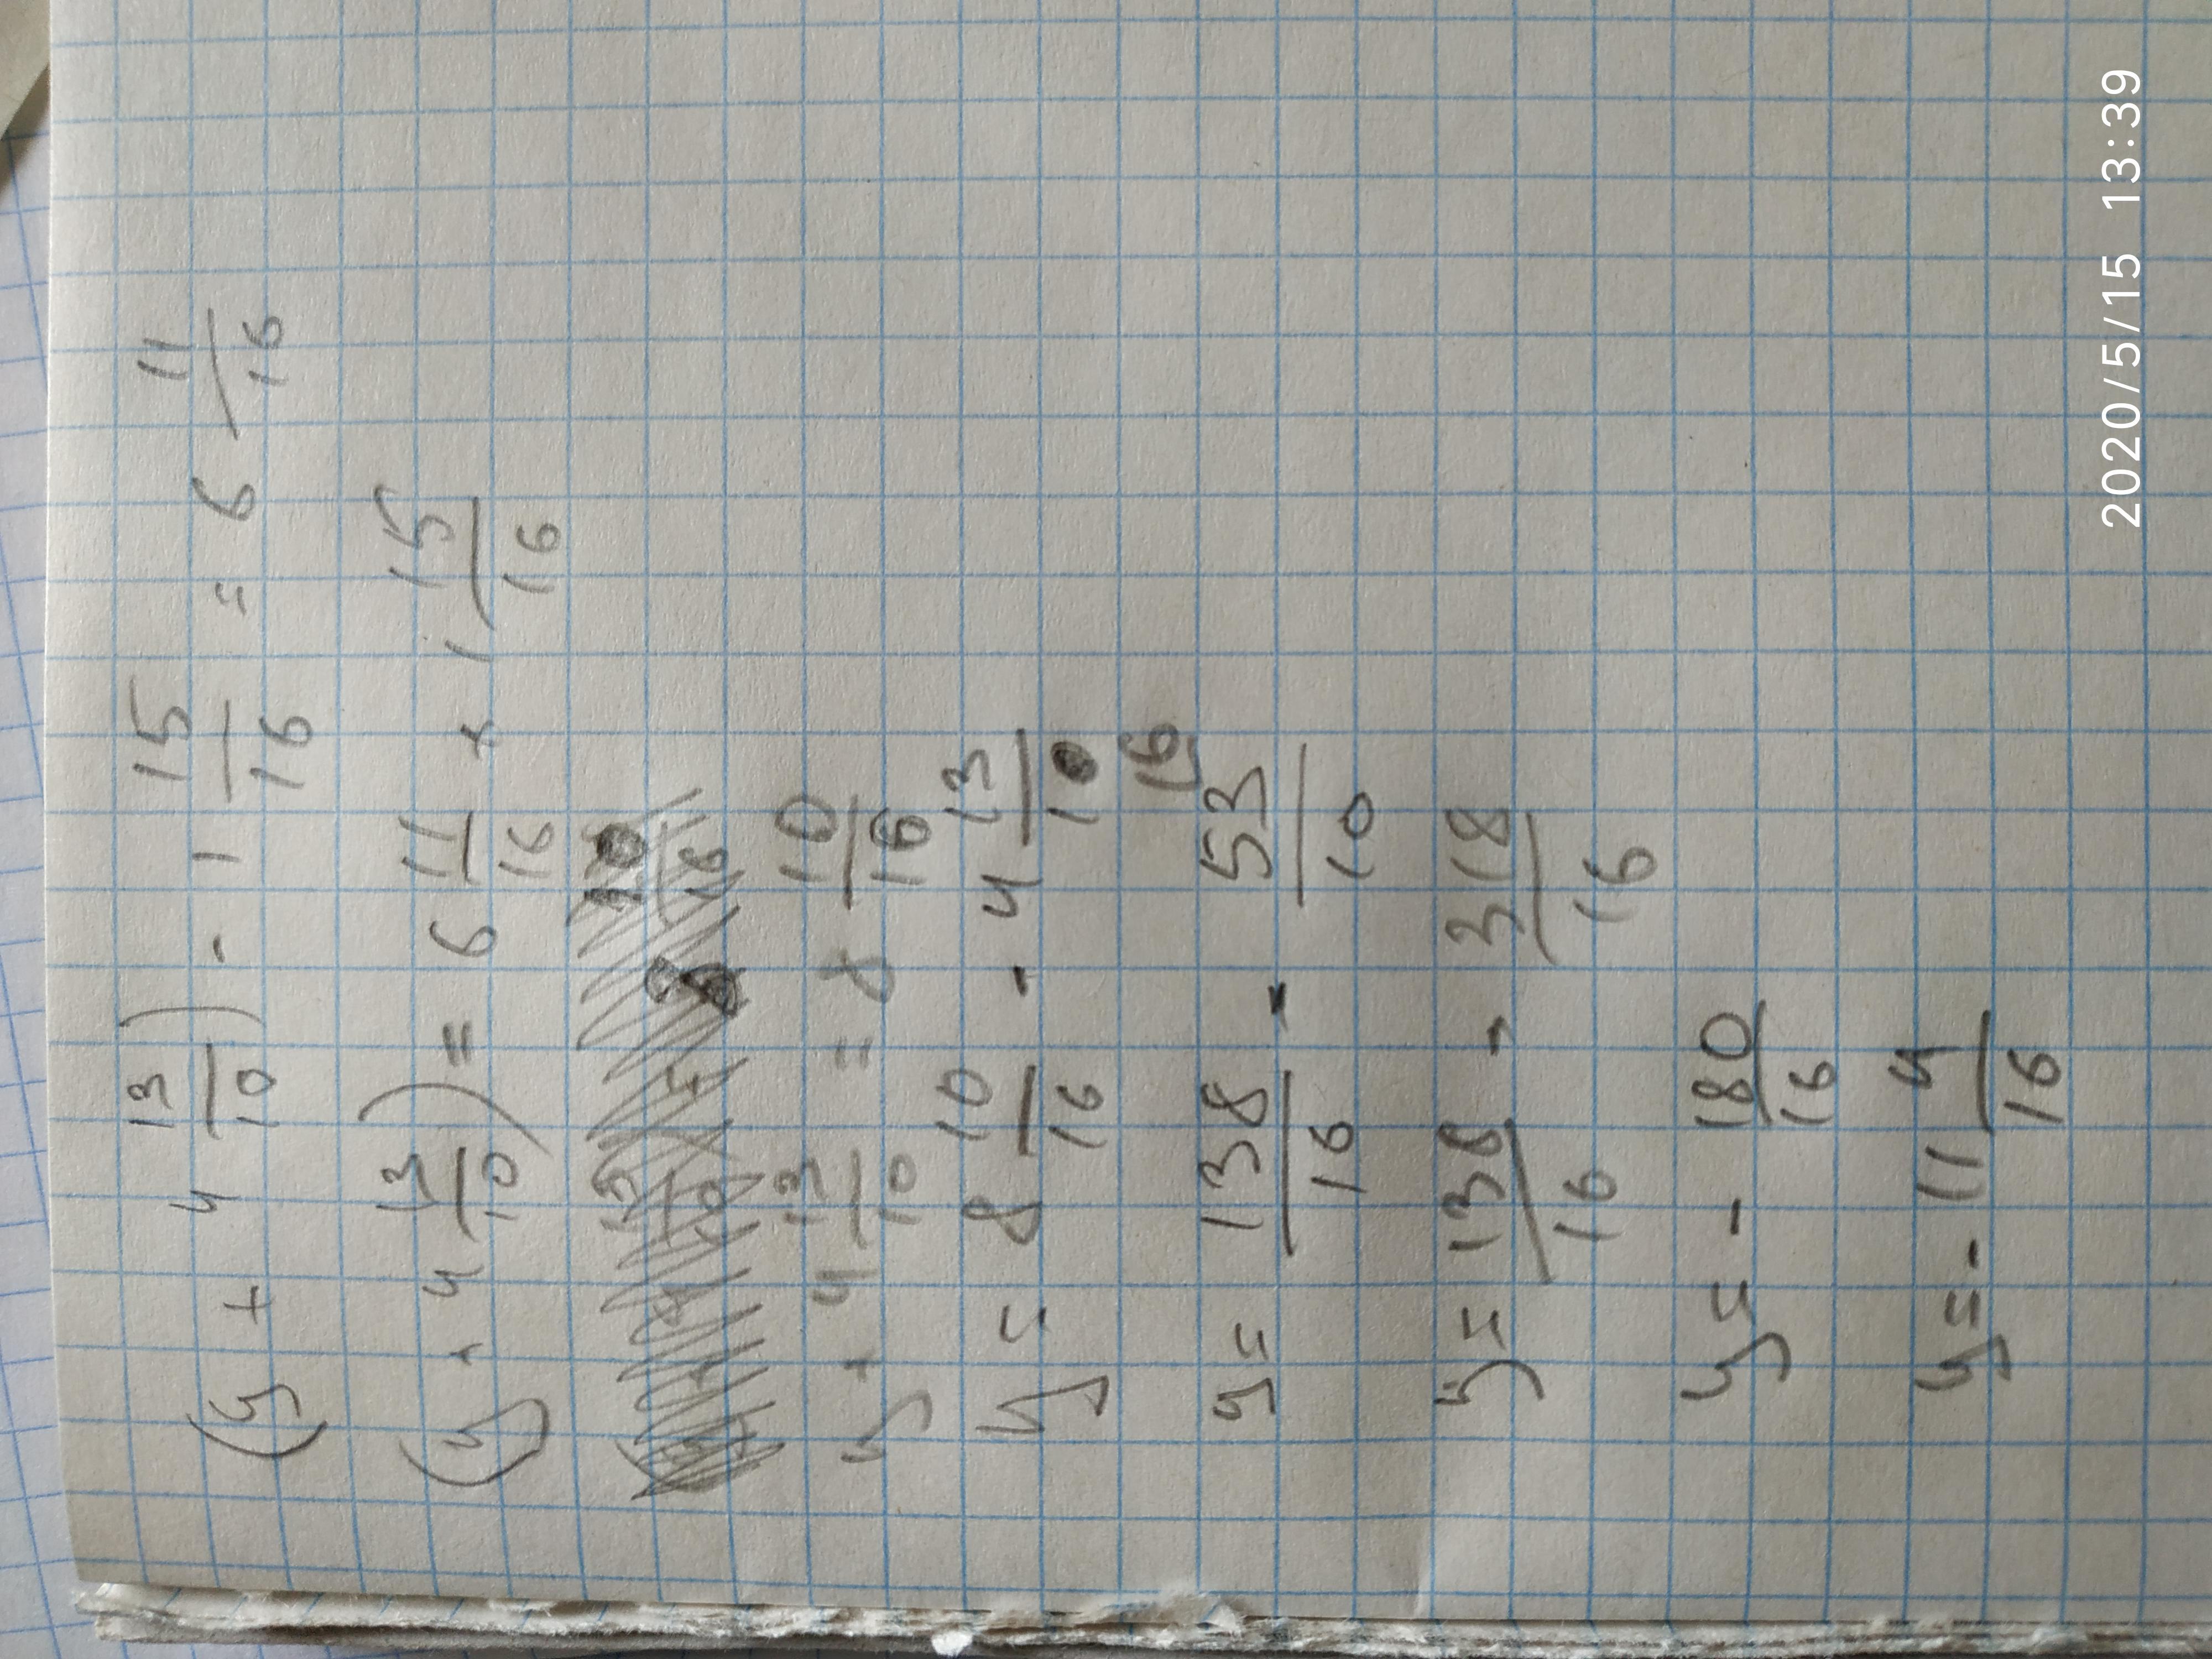 (y + 4 13/10) - 1 15/16 = 6 11/16
(y + 4 13/10) = 6 11/16 + 1 15/16
y + 4 13/10 = 8 10/16
y = 8 10/16 - 4 13/10
16
y = 138/16 - 53/10
y = 138/16 - 318/16
y = - 180/16
y = - 11 4/16
2020/5/15 13:39